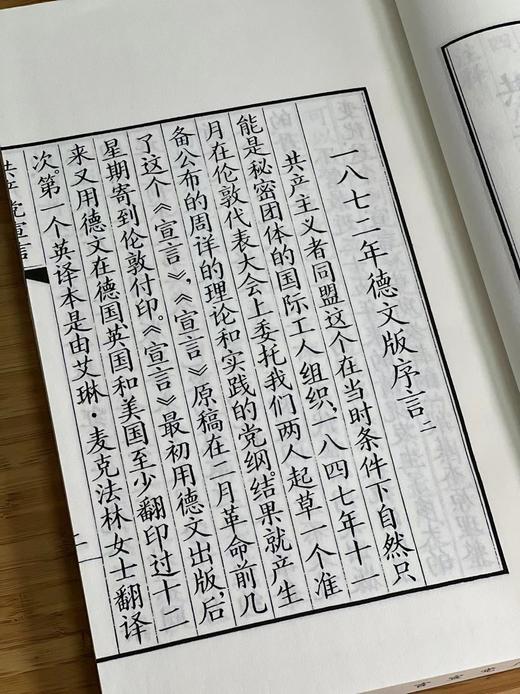 一八七二年德文版序言二
共产主义者同盟这个在当时条件下自然只
能是秘密团体的国际工人组织，一八四七年十一
月在伦敦代表大会上委托我们两人起草一个准
备公布的周详的理论和实践的党纲。结果就产生
了这个《宣言》，《宣言》原稿在二月革命前几
星期寄到伦敦付印。《宣言》最初用德文出版，后
来又用德文在德国、英国和美国至少翻印过十二
次。第一个英译本是由艾琳·麦克法林女士翻译
共产党宣言